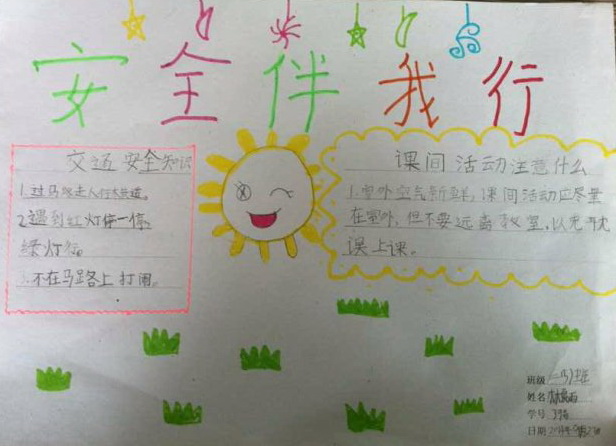 安全伴我行
交通安全知识
1.过马路走人行横道。
2.遇到红灯停一停,
绿灯行。
3.不在马路上打闹。
课间活动注意什么
1.室外空气新鲜,课间活动应尽量
在室外,但不要远离教室,以免耽
误上课。
班级
姓名
学号
日期